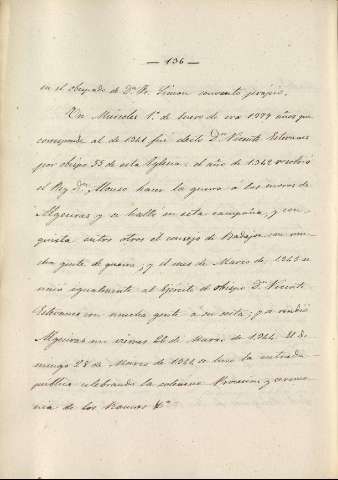 — 136 —
en el obispado de Dn. Fr. Simon convento propio.
Un Miercoles 1º de Enero de era 1379 años que
corresponde al de 1341 fué electo Dn. Vicente Estevanes
por obispo 55 de esta Iglesia: el año de 1342 resolvió
el Rey Dn. Alonso hacer la guerra a los moros de
Algeciras y se halló en esta campaña, y con-
quista entre otros el consejo de Badajoz con mu-
cha gente de guerra, y el mes de Marzo de 1343 se
unió igualmente al Ejército el obispo Dn. Vicente
Estevanes con mucha gente á su costa; y se rindió
Algeciras en viernes 26 de Marzo de 1344. El do-
mingo 28 de Marzo de 1344 se hizo la entrada
publica celebrando la solemne Procesion y ceremo-
nia de los Ramos &a